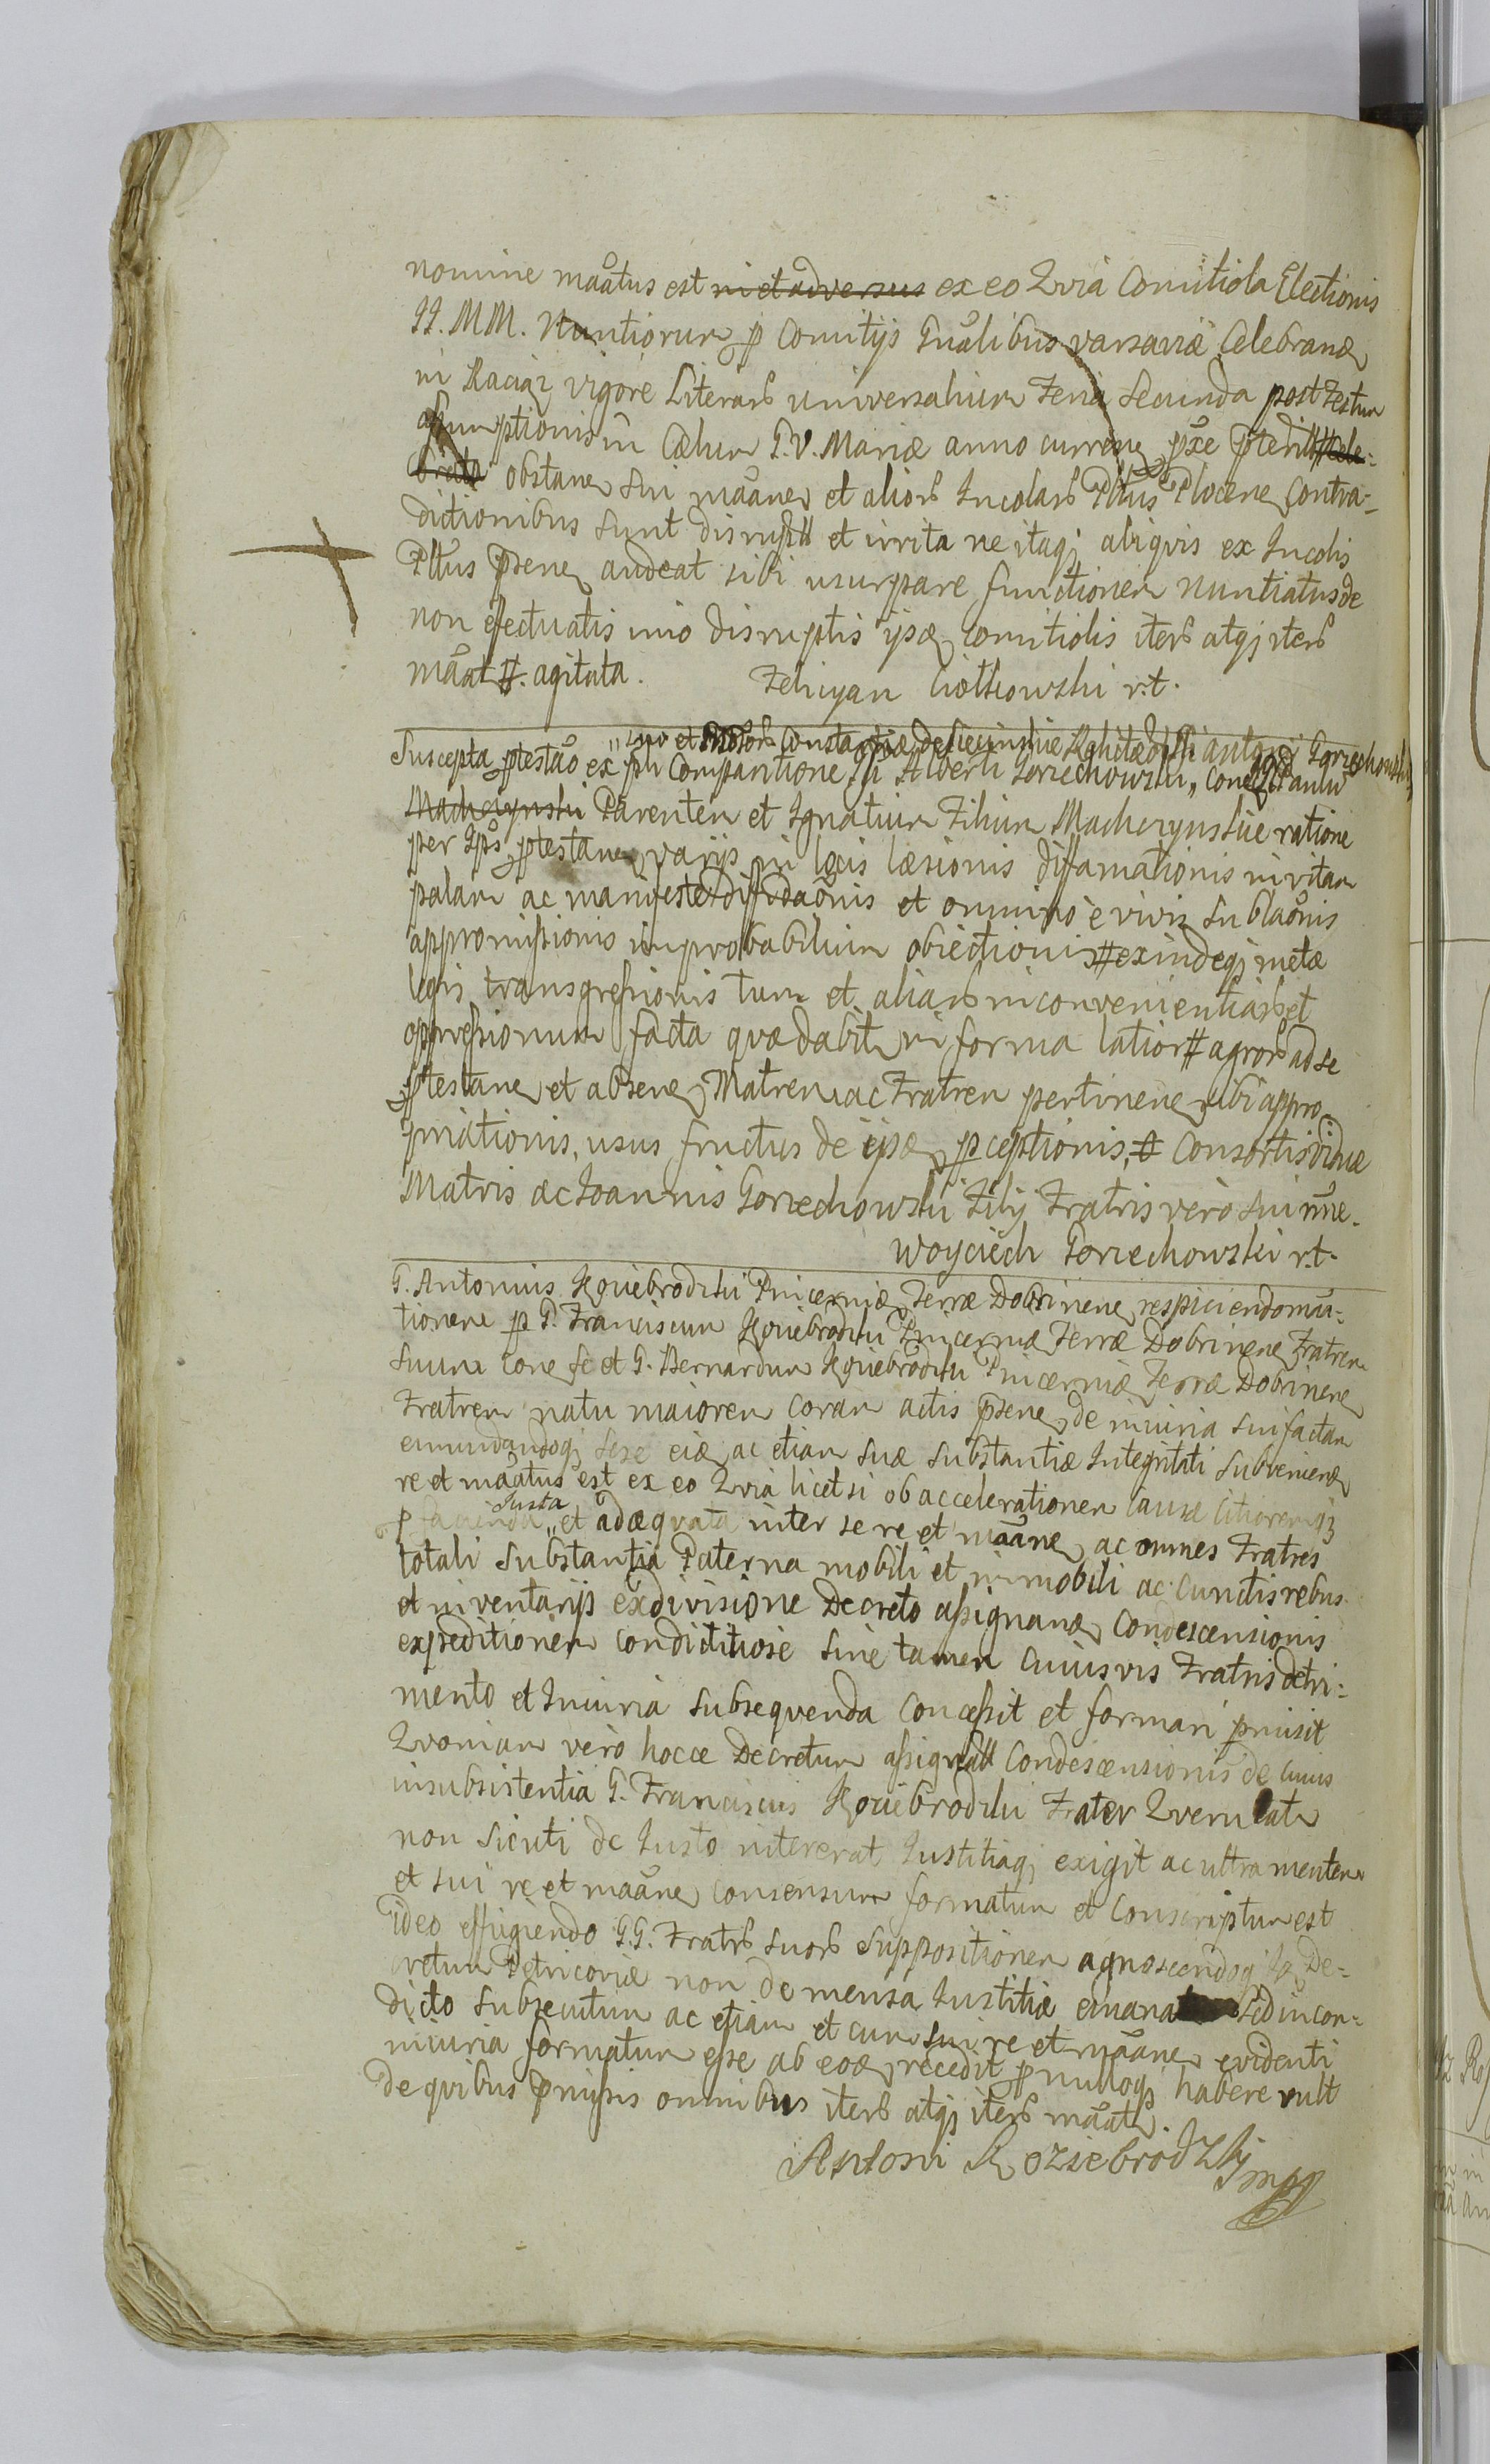 nomine maãtus est in et adversus ex eo Qvia Comitiola Electionis
JJ. MM. Nuntiorum p Comitijs Gnãlibus varsaviæ Celebranđ
in Raciąz vigore Literarb universalium Feria Secunda post Festum
assumptionis in Cælum B.V. Mariæ anno curren pñse pterit cele-
brata obstanen sui maãnen et aliorb Incolarb Pltus Plocen Contra-
dictionibus sunt disrupta et irrita ne itaqj aliqvis ex Incolis
Pltus psenen audeat sibi usurpare functionem nuntiatus de
non efectuatis imo disruptis ijsdem comitiolis iterb atqj iterb
maãt agitata. Felicyan Ciołkowski r.t.
suo et Constantiæ de Siecinskie Relictæ olim Antoni Gorzechowski
Suscepta ptestão ex psli Comparitione Alberti Gorzechowski, Con Paulu
Macherzynski Parentem et Ignatium Filium Macherzynskie ratione
per Ipõs ptestanen varijs in locis læsionis diffamationis in vitam
palam ac manifeste diffidaõnis et omnino e vivis sublaõnis
appromissionis improbabilium obiectionis exindeqj metæ
legis transgressionis tum et aliarb inconvenientiarb et
oppressionum facta qvæ dabitur in forma latiori agrorb ad se
ptestanen et absenen Matrem ac Fratrem pertinenen sibi appro-
priationis, usus fructus de ijsdem pceptionis, Consortis viduæ
Matris ac Joannis Gorzechowski Filij Fratris vero sui nñe.
Woyciech Gorzechowski r.t.
G. Antonius Koziebrodzki Pincernidæ Terræ Dobrinen, respiciendo maã-
tionem p G. Franciscum Koziebrodzki Pincernidæ Terræ Dobrinen Fratrem
suum con se et G. Bernardum Koziebrodzki Pincernidæ Terræ Dobrinen
Fratrem natu maiorem coram actis psen de iniuria sui factam
emundandoqj sese ac etiam suæ substantiæ Integritati subveniend
re et maãtus est ex eo Qvia licet si ob accelerationem causæ litiorumqj
Justa
p facienda et adæqvata inter se re et maãnen ac omnes Fratres
totali substantia Paterna mobili et immobili ac cunctis rebus
et inventarijs exdivisione Decreto assignand Condescensionis
expeditionem condictitiose sine tamen cuiusvis Fratris detri-
mento et Iniuria subseqvenda concessit et formari pmisit
Qvoniam vero hocce Decretum assignat Condescensionis de cuius
insubsistentia G. Franciscus Koziebrodzki Frater Qverulatr
non sicuti de Justo intererat Justitiaqj exigit ac ultra mentem
et sui re et maãnen consensum formatum et Conscriptum est
ideo effugiendo G.G. Fratrb suorb suppositionem agnoscendoqj De-
cretum Petricoviæ non de mensa Justitiæ emana sed incon-
dicto subsecutum ac etiam et cum sui re et maãnen evidenti
iniuria formatum esse ab eodem recedit p nulloqj habere vult
de qvibus pmissis omnibus iterb atqj iterb maãtr.
Antoni Koziebrodzki mpp